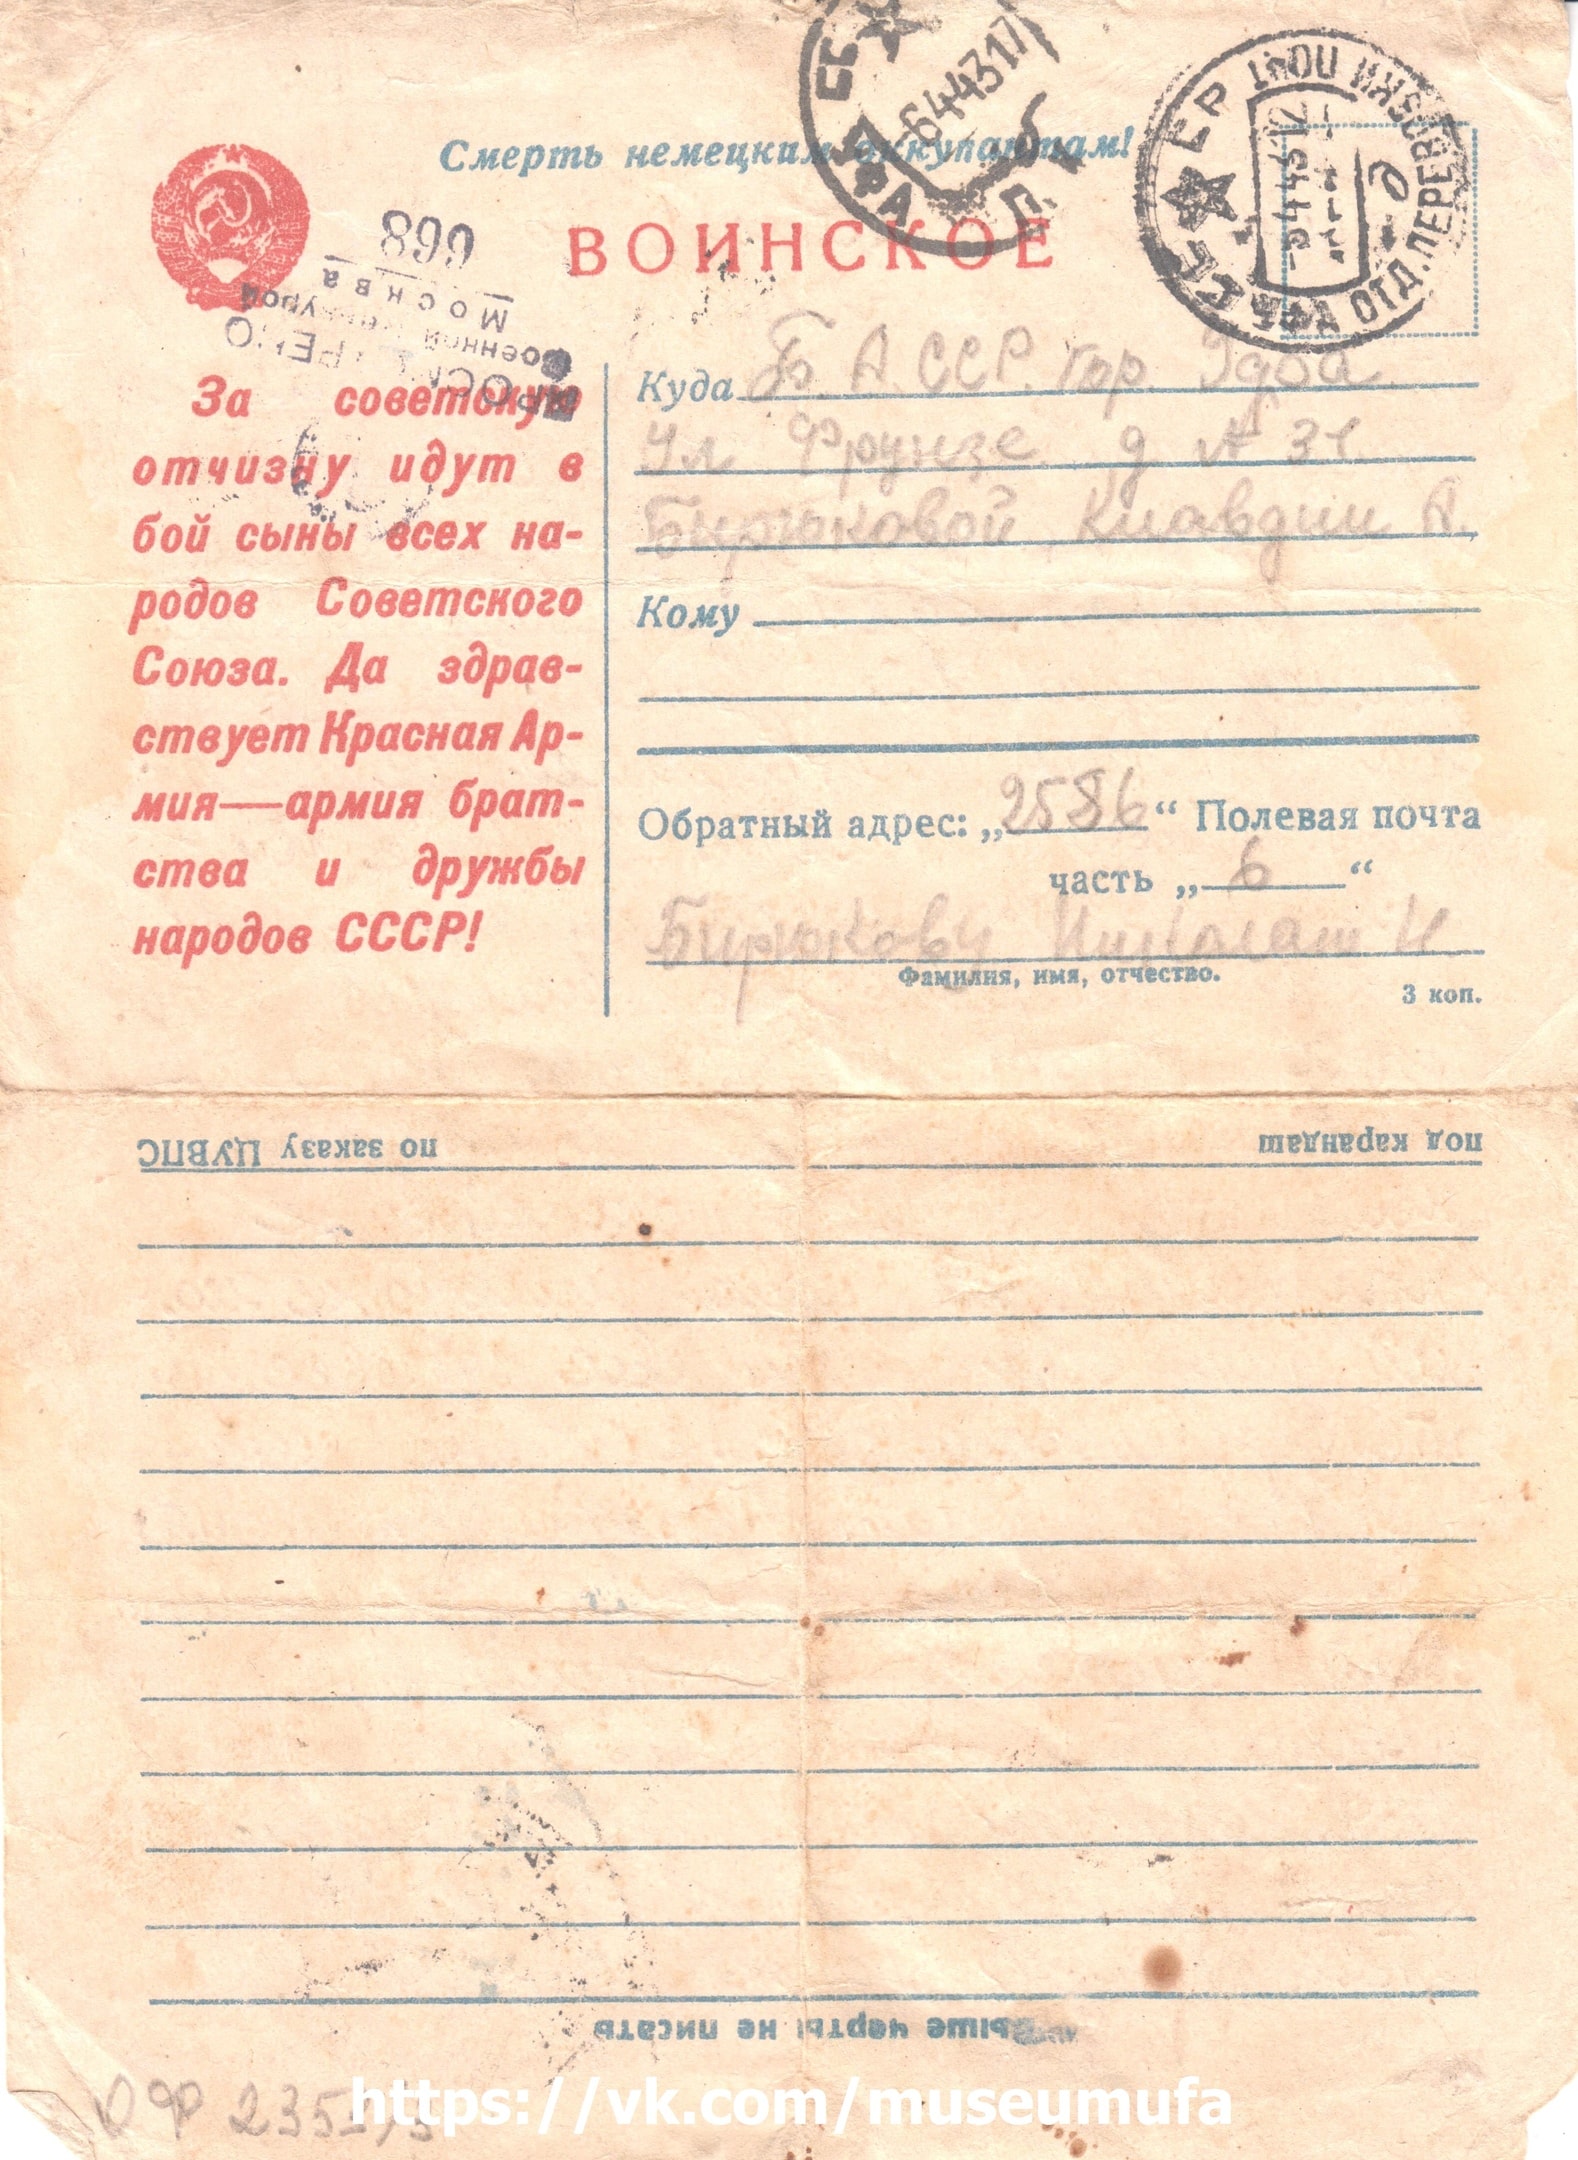 Смерть немецким оккупантам!
ВОИНСКОЕ
6 4 43 17
УФА
УФА ОТД. ПЕРЕВОЗКИ ПОЧТ
868
Москва
Военной Цензурой
ПРОСМОТРЕНО
За советскую
отчизну идут в
бой сыны всех на-
родов Советского
Союза. Да здрав-
ствует Красная Ар-
мия—армия брат-
ства и дружбы
народов СССР!
Куда Б. А. ССР. гор. Уфа.
Ул Фрунзе д № 31.
Бирюковой Клавдии А.
Кому
Обратный адрес: „2586“ Полевая почта
часть „6“
Бирюкову Николаю И
Фамилия, имя, отчество.
3 коп.
под карандаш
по заказу ЦУВПС
выше черты не писать
ОФ
https://vk.com/museumufa